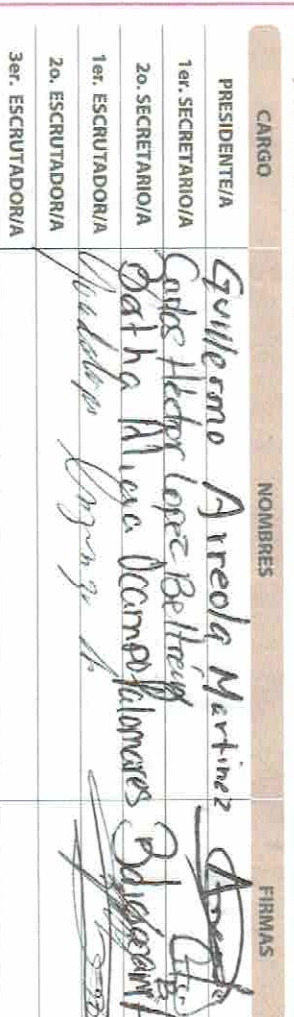 CARGO NOMBRES FIRMAS
PRESIDENTE/A Guillermo Arreola Martinez
1er. SECRETARIO/A Carlos Hector Lopez Beltran
2o. SECRETARIO/A Bertha Alicia Ocampo Palomares
1er. ESCRUTADOR/A Guadalupe
2o. ESCRUTADOR/A
3er. ESCRUTADOR/A